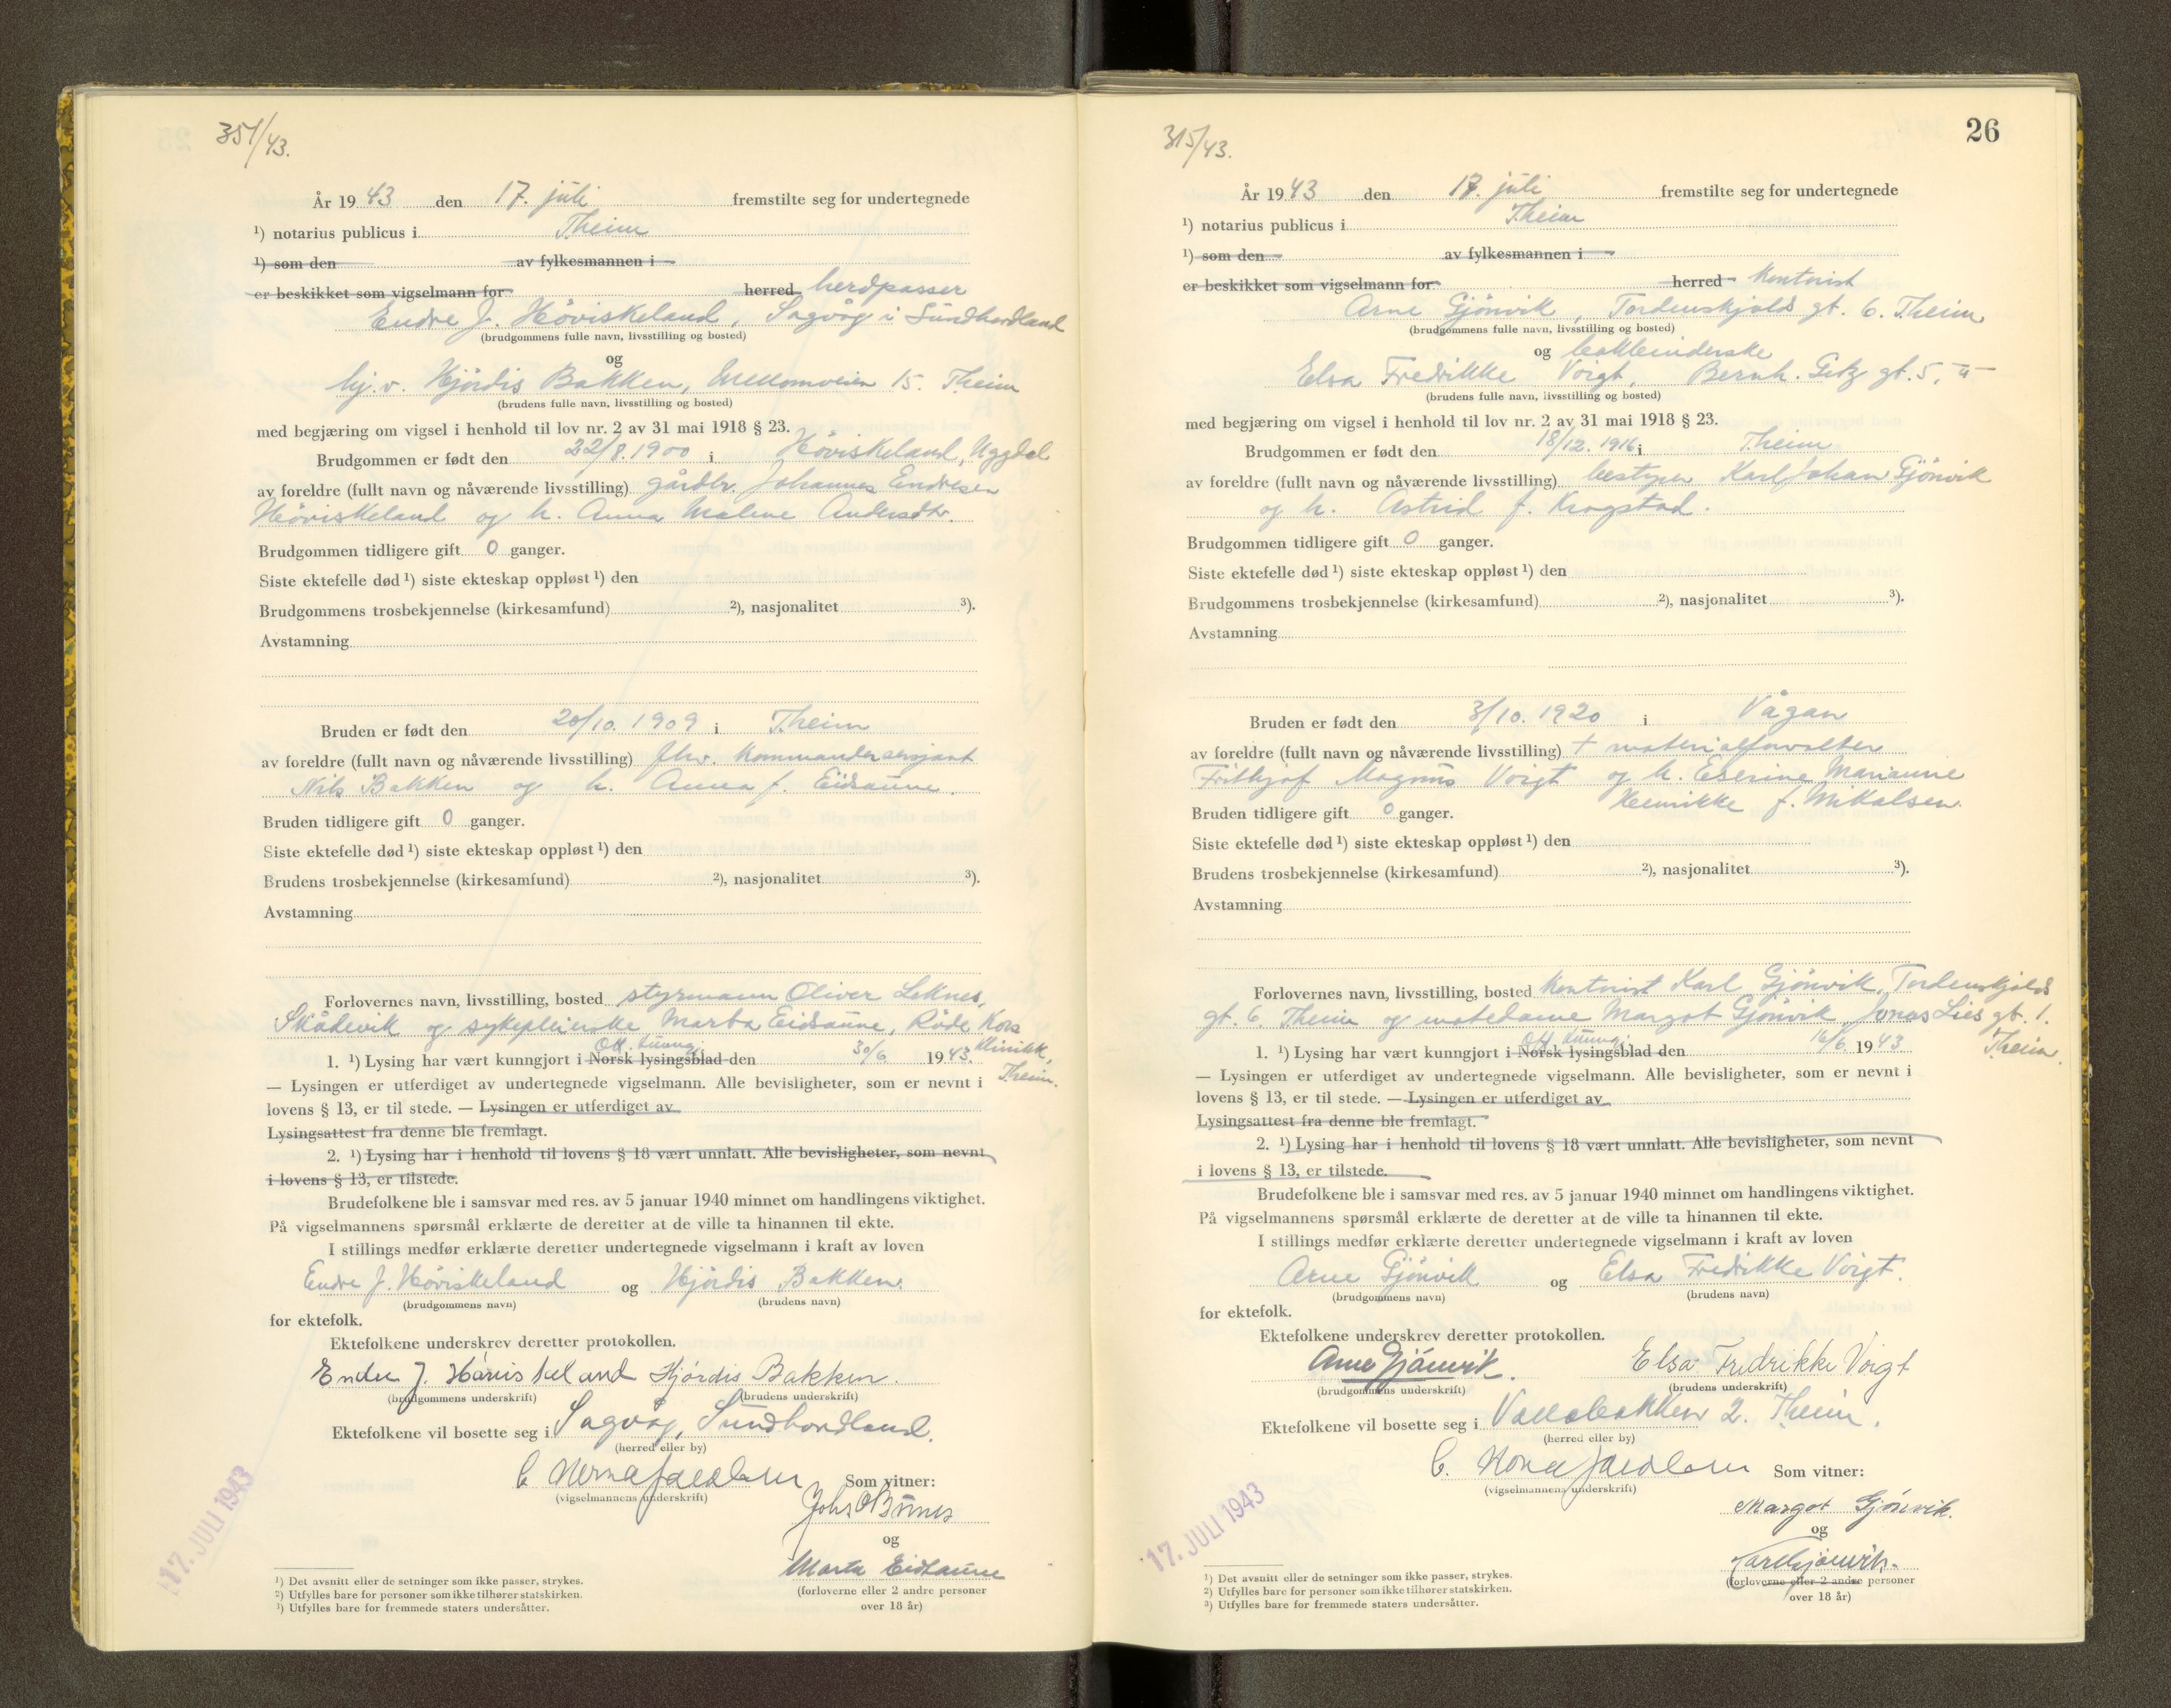 351/43.
År 1943 den 17. juli fremstilte seg for undertegnede
¹) notarius publicus i Theim
¹) som den av fylkesmannen i
er beskikket som vigselmann for herred herdpasser
Endre J. Höviskeland, Sagvåg i Sundhordland
(brudgommens fulle navn, livsstilling og bosted)
og
hj.v. Hjördis Bakken, 15. Theim
(brudens fulle navn, livsstilling og bosted)
med begjæring om vigsel i henhold til lov nr. 2 av 31 mai 1918 § 23.
Brudgommen er født den 22/8. 1900 i Höviskeland, Uggdal
av foreldre (fullt navn og nåværende livsstilling) gårdbr. Johannes Endresen
Höviskeland og h. Anna Malene Andersdtr.
Brudgommen tidligere gift 0 ganger.
Siste ektefelle død ¹) siste ekteskap oppløst ¹) den
Brudgommens trosbekjennelse (kirkesamfund) ²), nasjonalitet ³).
Avstamning
Bruden er født den 20/10. 1909 i Theim
av foreldre (fullt navn og nåværende livsstilling) fhv. kommandersersjant
Nils Bakken og h. Anna f. Eidsaune.
Bruden tidligere gift 0 ganger.
Siste ektefelle død ¹) siste ekteskap oppløst ¹) den
Brudens trosbekjennelse (kirkesamfund) ²), nasjonalitet ³).
Avstamning
Forlovernes navn, livsstilling, bosted styrmann Oliver Leknes,
Skådevik og sykepleierske Marta Eidsaune, Röde Kors
Klinikk,
Off. kunngj.
1. ¹) Lysing har vært kunngjort i Norsk lysingsblad den 30/6 1943.
Theim.
— Lysingen er utferdiget av undertegnede vigselmann. Alle bevisligheter, som er nevnt i
lovens § 13, er til stede. — Lysingen er utferdiget av
Lysingsattest fra denne ble fremlagt.
2. ¹) Lysing har i henhold til lovens § 18 vært unnlatt. Alle bevisligheter, som nevnt
i lovens § 13, er tilstede.
Brudefolkene ble i samsvar med res. av 5 januar 1940 minnet om handlingens viktighet.
På vigselmannens spørsmål erklærte de deretter at de ville ta hinannen til ekte.
I stillings medfør erklærte deretter undertegnede vigselmann i kraft av loven
Endre J. Höviskeland og Hjördis Bakken.
(brudgommens navn) (brudens navn)
for ektefolk.
Ektefolkene underskrev deretter protokollen.
Endre J. Höviskeland Hjördis Bakken.
(brudgommens underskrift) (brudens underskrift)
Ektefolkene vil bosette seg i Sagvåg, Sundhordland.
(herred eller by)
Som vitner:
(vigselmannens underskrift)
og
Marta Eidsaune
(forloverne eller 2 andre personer
over 18 år)
17. JULI 1943
¹) Det avsnitt eller de setninger som ikke passer, strykes.
²) Utfylles bare for personer som ikke tilhører statskirken.
³) Utfylles bare for fremmede staters undersåtter.
26
315/43.
År 1943 den 17. juli fremstilte seg for undertegnede
¹) notarius publicus i Theim
¹) som den av fylkesmannen i
er beskikket som vigselmann for herred Kontorist
Arne Gjönvik, Tordenskjolds gt. 6. Theim
(brudgommens fulle navn, livsstilling og bosted)
og bokbinderske
Elsa Fredrikke Voigt, Bernh. Getz gt. 5,
(brudens fulle navn, livsstilling og bosted)
med begjæring om vigsel i henhold til lov nr. 2 av 31 mai 1918 § 23.
Brudgommen er født den 18/12. 1916 i Theim
av foreldre (fullt navn og nåværende livsstilling) bestyrer Karl Johan Gjönvik
og h. Astrid f. Krogstad.
Brudgommen tidligere gift 0 ganger.
Siste ektefelle død ¹) siste ekteskap oppløst ¹) den
Brudgommens trosbekjennelse (kirkesamfund) ²), nasjonalitet ³).
Avstamning
Bruden er født den 3/10. 1920 i Vågan
av foreldre (fullt navn og nåværende livsstilling) + materialforvalter
Frithjof Magnus Voigt og h. Eserine Marianne
Henrikke f. Mikalsen.
Bruden tidligere gift 0 ganger.
Siste ektefelle død ¹) siste ekteskap oppløst ¹) den
Brudens trosbekjennelse (kirkesamfund) ²), nasjonalitet ³).
Avstamning
Forlovernes navn, livsstilling, bosted Kontorist Karl Gjönvik, Tordenskjolds
gt. 6. Theim og motedame Margot Gjönvik, Jonas Lies gt. 1.
Theim.
Off. kunngj.
1. ¹) Lysing har vært kunngjort i Norsk lysingsblad den 16/6. 1943
— Lysingen er utferdiget av undertegnede vigselmann. Alle bevisligheter, som er nevnt i
lovens § 13, er til stede. — Lysingen er utferdiget av
Lysingsattest fra denne ble fremlagt.
2. ¹) Lysing har i henhold til lovens § 18 vært unnlatt. Alle bevisligheter, som nevnt
i lovens § 13, er tilstede.
Brudefolkene ble i samsvar med res. av 5 januar 1940 minnet om handlingens viktighet.
På vigselmannens spørsmål erklærte de deretter at de ville ta hinannen til ekte.
I stillings medfør erklærte deretter undertegnede vigselmann i kraft av loven
Arne Gjönvik og Elsa Fredrikke Voigt.
(brudgommens navn) (brudens navn)
for ektefolk.
Ektefolkene underskrev deretter protokollen.
Arne Gjönvik. Elsa Fredrikke Voigt
(brudgommens underskrift) (brudens underskrift)
Ektefolkene vil bosette seg i Vollabakken 2. Theim.
(herred eller by)
Som vitner:
(vigselmannens underskrift)
Margot Gjönvik.
og
Karl Gjönvik.
(forloverne eller 2 andre personer
over 18 år)
17. JULI 1943
¹) Det avsnitt eller de setninger som ikke passer, strykes.
²) Utfylles bare for personer som ikke tilhører statskirken.
³) Utfylles bare for fremmede staters undersåtter.